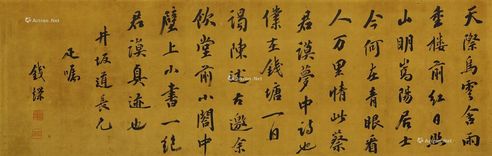 天際烏雲含雨
重樓前紅日照
山明嵩陽居士
今何在青眼看
人万里情此蔡
君謨夢中詩也
僕在錢塘一日
謁陳述古邀余
飲堂前小閣中
壁上小書一絕
君謨真迹也
井坂道長兄
錢